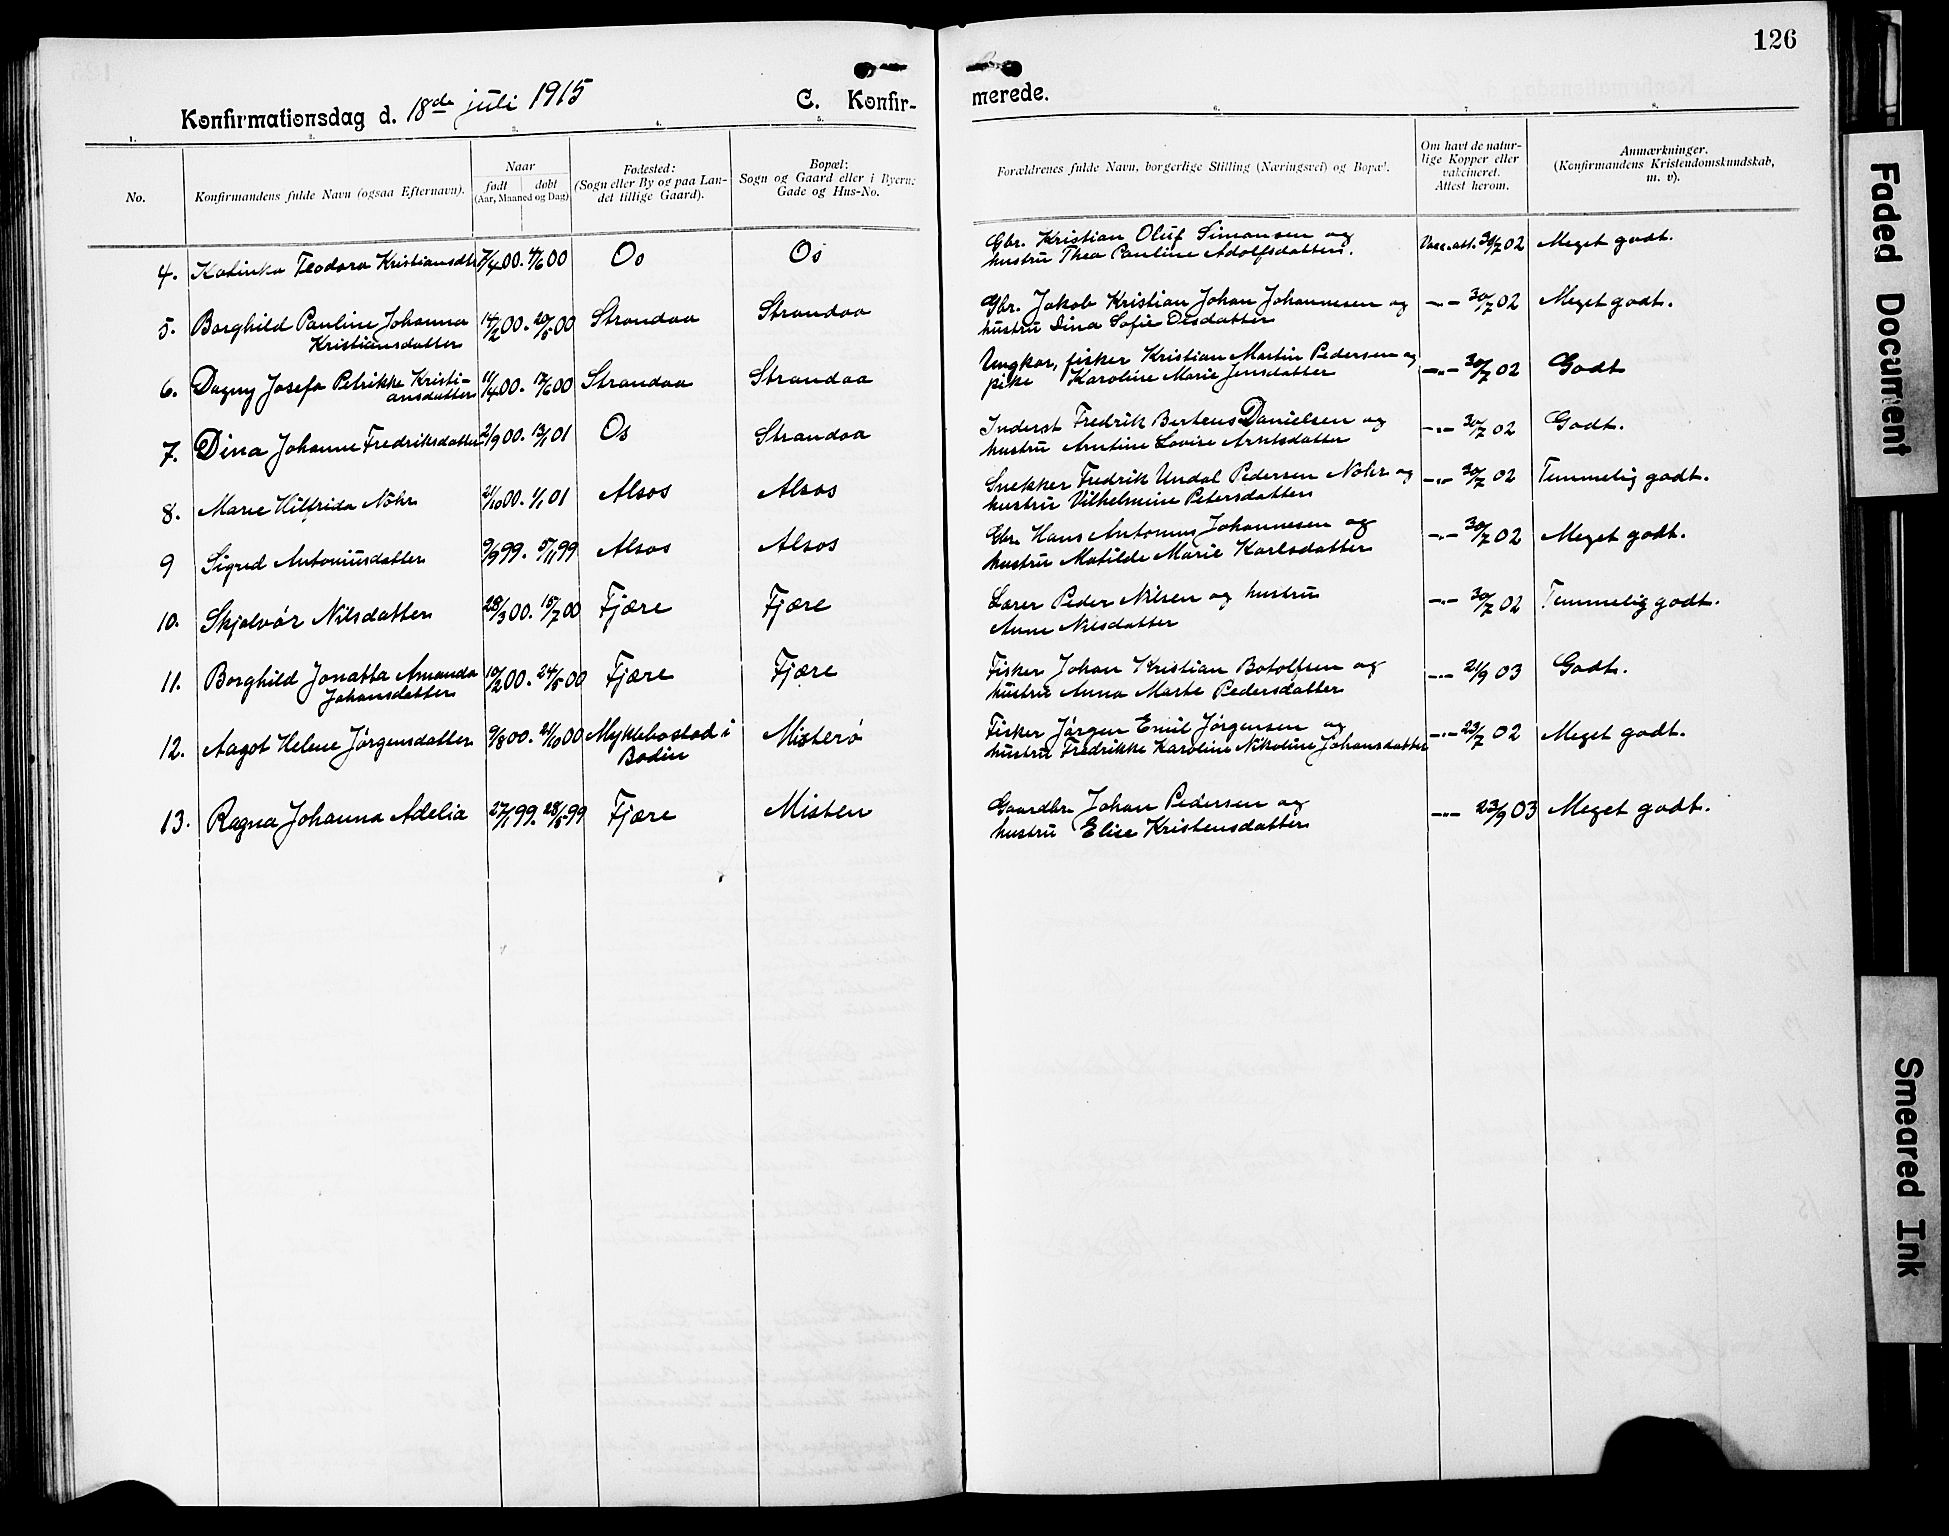 126
Konfirmationsdag d. 18de juli 1915
C. Konfir-
merede.
1. 2. 3. 4. 5. 6. 7. 8.
No.
Konfirmandens fulde Navn (ogsaa Efternavn).
Naar
født døbt
(Aar, Maaned og Dag)
Fødested:
(Sogn eller By og paa Lan-
det tillige Gaard).
Bopæl:
Sogn og Gaard eller i Byern:
Gade og Hus-No.
Forældrenes fulde Navn, borgerlige Stilling (Næringsvei) og Bopæl.
Om havt de natur-
lige Kopper eller
vakcineret.
Attest herom.
Anmærkninger.
(Konfirmandens Kristendomskundskab,
m. v).
4. Katinka Teodora Kristiansdtr 7/4 00. 4/6 00 Os Os Gbr. Kristian Oluf Simonsen og Vacc.att. 30/7 02 Meget godt.
hustru Thea Pauline Adolfsdatter.
5. Borghild Pauline Johanna 14/2 00. 20/5 00 Strandaa Strandaa Gbr. Jakob Kristian Johan Johannesen og -"- 30/7 02 Meget godt.
Kristiansdatter hustru Dina Sofie Olsdatter
6. Dagny Josefa Petrikke Kristi- 11/4 00. 17/6 00 Strandaa Strandaa Ungkar, fisker Kristian Martin Pedersen og -"- 30/7 02 Godt
ansdatter pike Karoline Marie Jensdatter
7. Dina Johanne Fredriksdatter 2/9 00. 13/1 01 Os Strandaa Inderst Fredrik Bertens Danielsen og -"- 30/7 02 Godt.
hustru Antine Lovise Arntsdatter
8. Marie Hilfrida Nohr 21/10 00. 1/1 01 Alsos Alsos Snekker Fredrik Undal Pedersen Nohr og -"- 30/7 02 Temmelig godt.
hustru Vilhelmine Petersdatter
9 Sigrid Antoniusdatter 9/9 99. 5/11 99 Alsos Alsos Gbr. Hans Antonius Johannesen og -"- 30/7 02 Meget godt.
hustru Matilde Marie Karlsdatter
10. Skjalvör Nilsdatter 28/3 00. 15/7 00 Fjære Fjære Lærer Peder Nilsen og hustru -"- 30/7 02 Temmelig godt.
Anne Nilsdatter
11. Borghild Jonatta Amanda 10/2 00. 24/5 00 Fjære Fjære Fisker Johan Kristian Botolfsen og -"- 21/9 03 Godt.
Johansdatter hustru Anna Marte Pedersdatter
12. Aagot Helene Jörgensdatter 9/8 00. 21/10 00 Myklebostad i Misterö Fisker Jörgen Emil Jörgensen og -"- 23/7 02 Meget godt.
Bodin hustru Fredrikke Karoline Nikoline Johansdatter
13. Ragna Johanna Adelia 27/1 99. 28/5 99 Fjære Misten Gaardbr. Johan Pedersen og -"- 23/9 03 Meget godt.
hustru Elise Kristensdatter
Faded Document
Smeared Ink